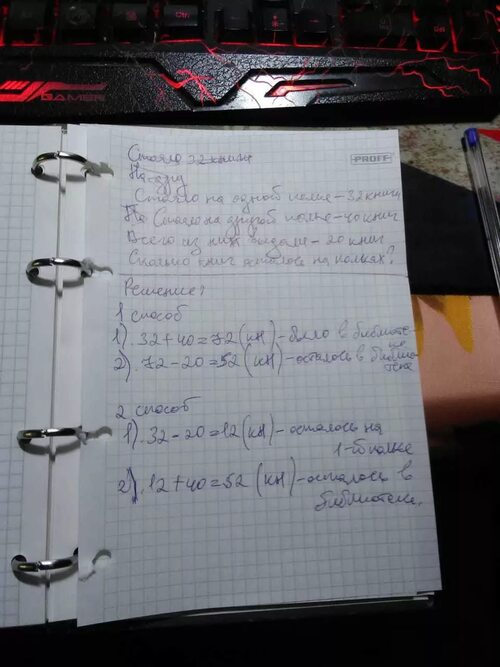 GAMER
Ctrl
PROFF
Стояло 32 книги
На одну
Стояло на одной полке - 32 книги
На Стояло на другой полке - 40 книг
Всего из них выдали - 20 книг
Сколько книг осталось на полках?
Решение:
1 способ
1). 32+40=72 (кн) - было в библиоте-
ке
2). 72-20=52 (кн) - осталось в библио-
теке
2 способ
1). 32-20=12 (кн) - осталось на
1-ой полке
2). 12+40=52 (кн) - осталось в
библиотеке.